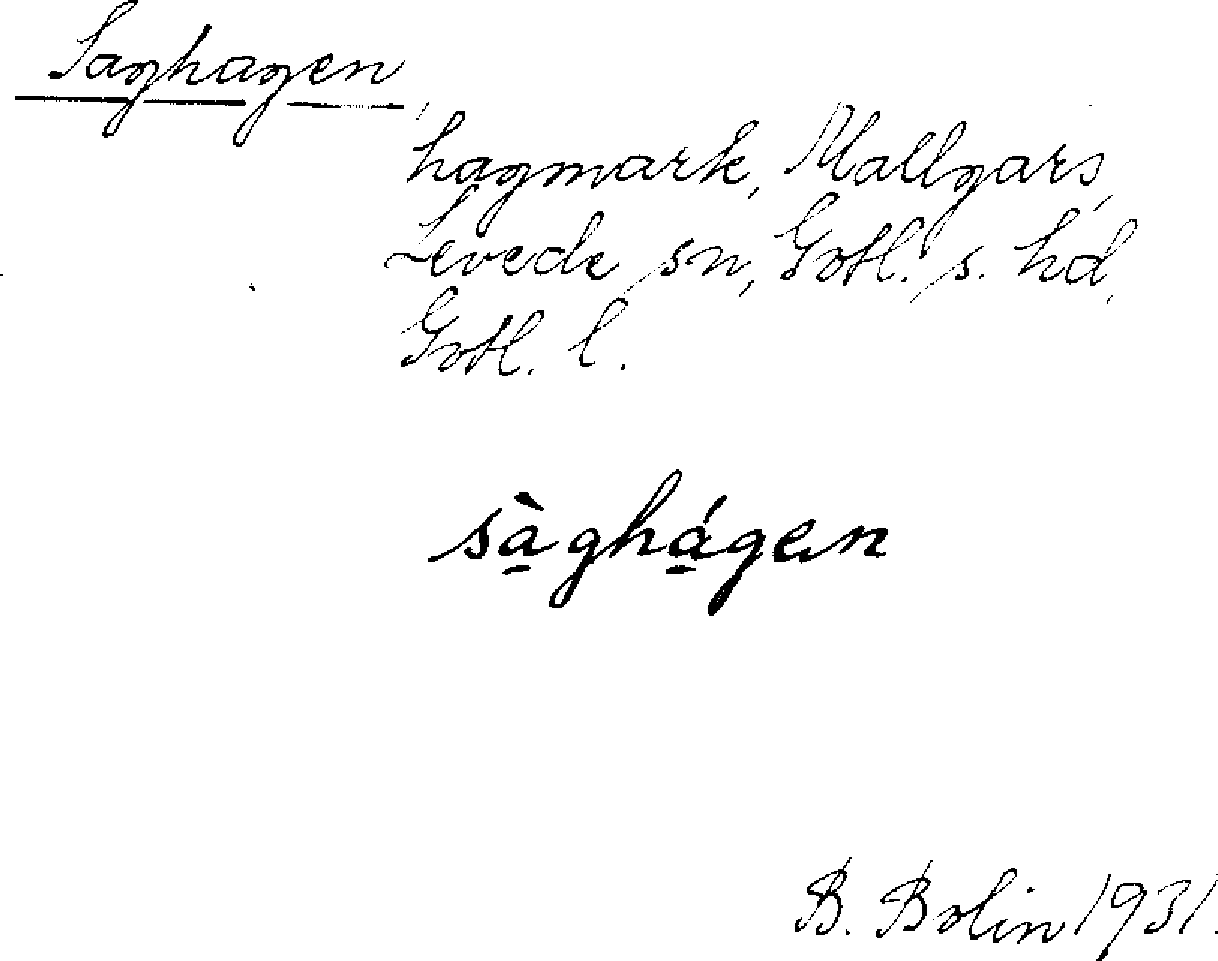 Saghagen,
hagmark, Mallgårs,
Levede sn, Gotl. s. hd,
Gotl. l.
sà̱ghá̱gen
B. Bolin 1931.